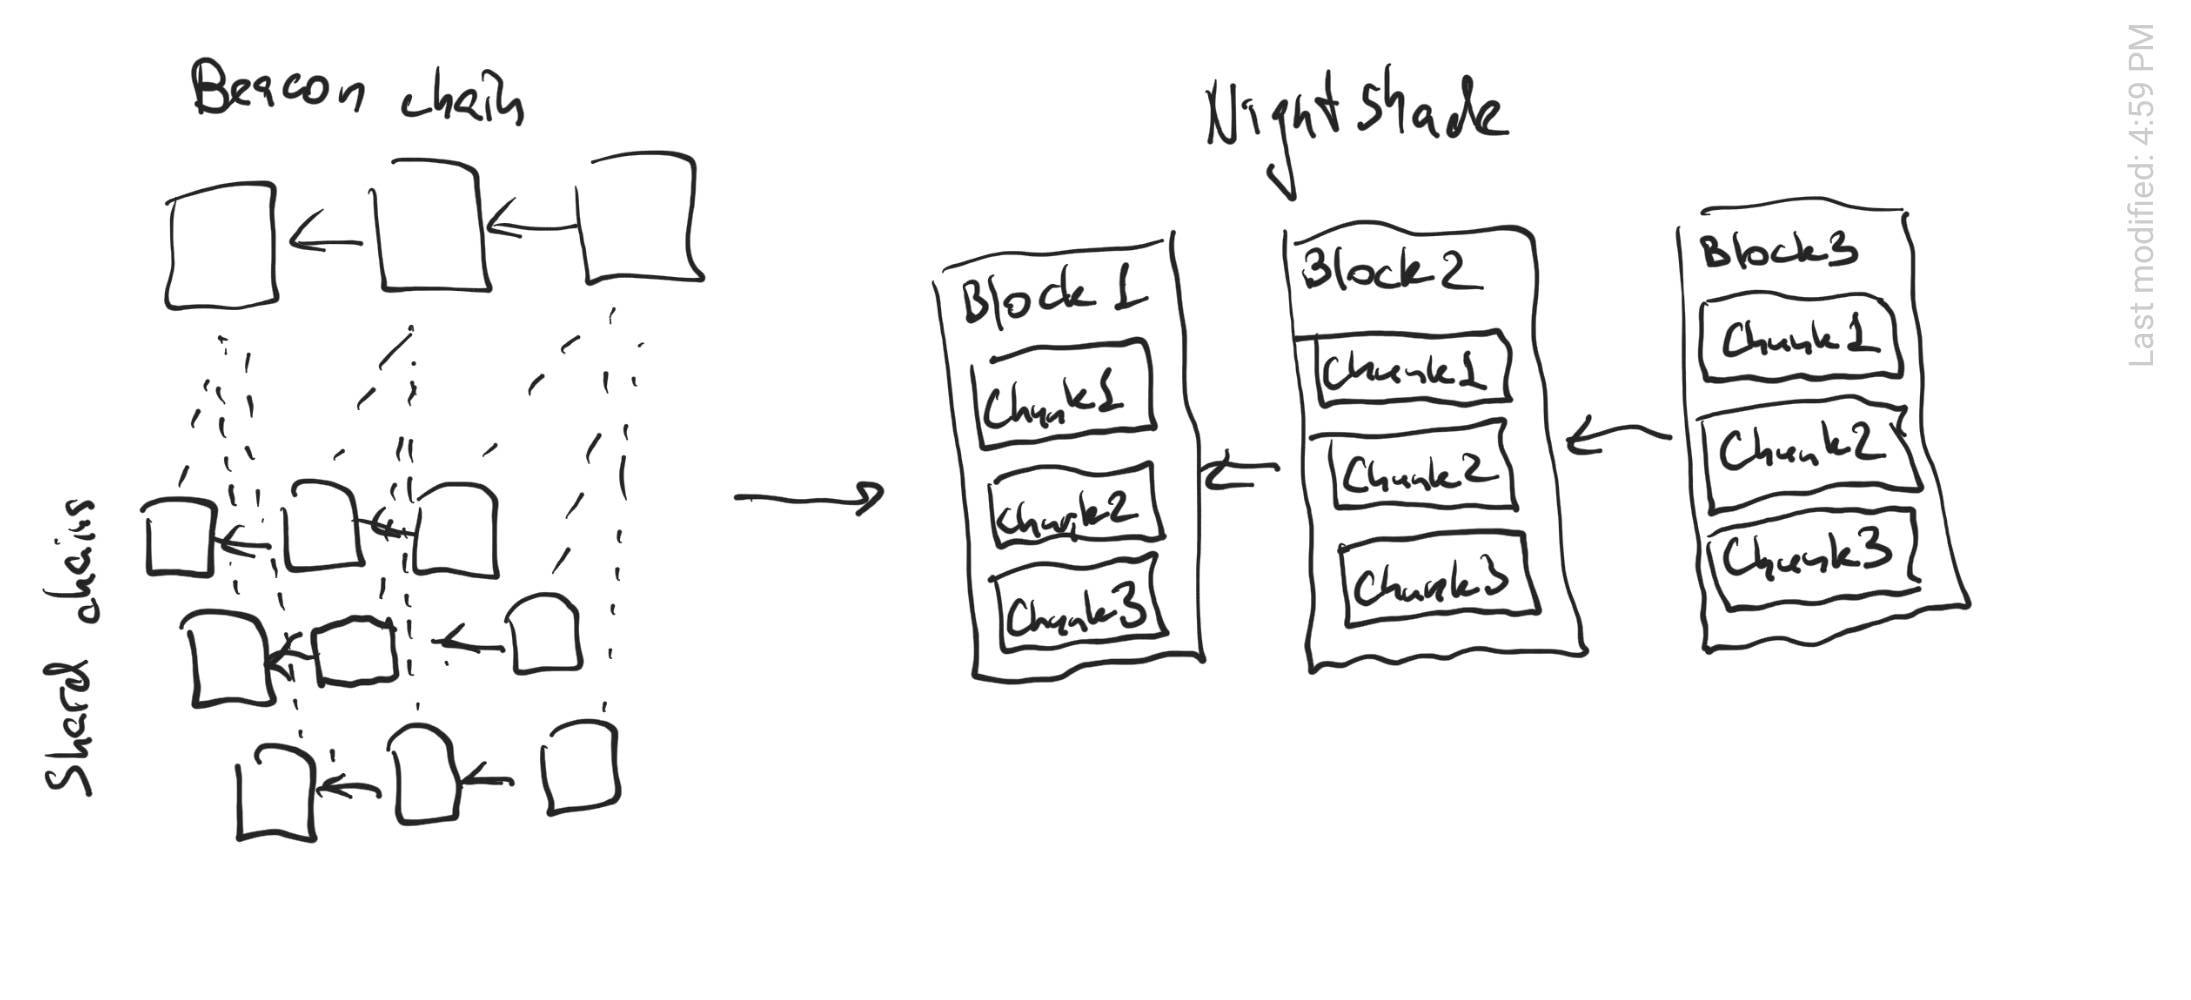 Beacon chain
Shard chains
Nightshade
Block 1
Chunk1
Chunk2
Chunk3
Block2
Chunk1
Chunk2
Chunk3
Block3
Chunk1
Chunk2
Chunk3
Last modified: 4:59 PM